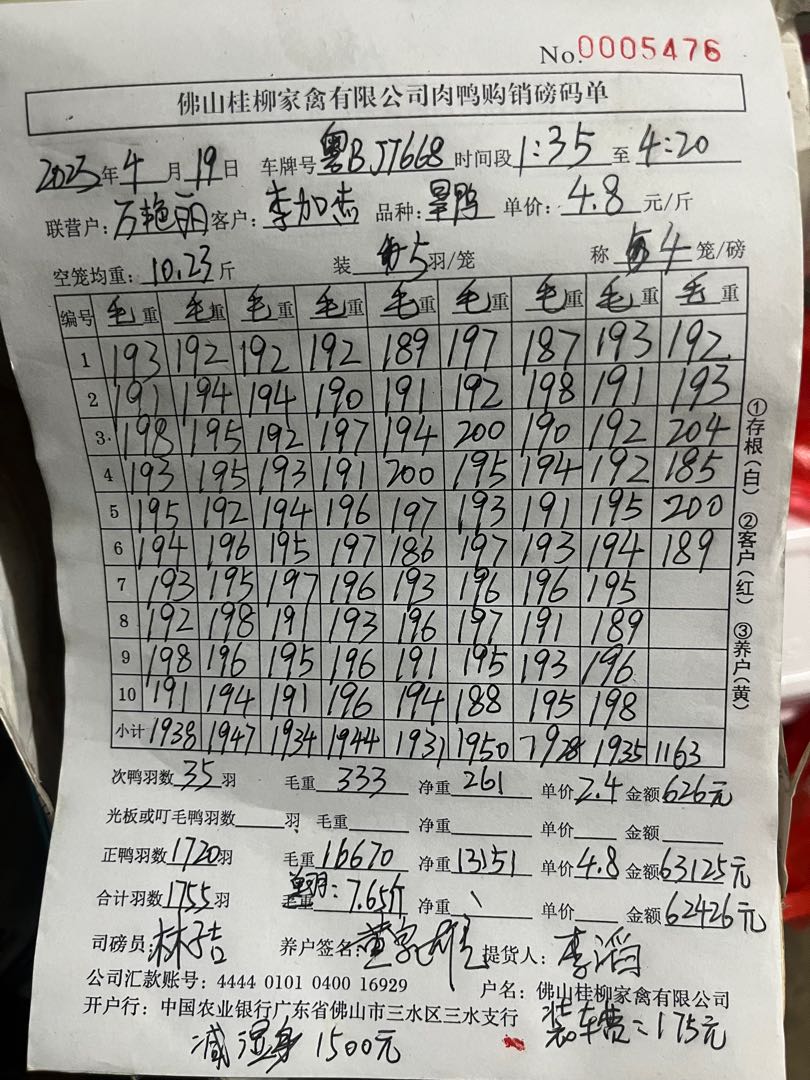 No.0005476
佛山桂柳家禽有限公司肉鸭购销磅码单
2023年4月19日 车牌号粤BJT668时间段1:35至4:20
联营户:万艳丽客户:李加杰 品种:旱鸭 单价:4.8元/斤
空笼均重:10.23斤 装5羽/笼 称4笼/磅
编号 毛重 毛重 毛重 毛重 毛重 毛重 毛重 毛重 毛重
1 193 192 192 192 189 197 187 193 192
2 191 194 194 190 191 192 198 191 193
3 198 195 192 197 194 200 190 192 204
4 193 195 193 191 200 195 194 192 185
5 195 192 194 196 197 193 191 195 200
6 194 196 195 197 186 197 193 194 189
7 193 195 197 196 193 196 196 195
8 192 198 191 193 196 197 191 189
9 198 196 195 196 191 195 193 196
10 191 194 191 196 194 188 195 198
小计 1938 1947 1934 1944 1931 1950 1928 1935 1163
次鸭羽数35羽 毛重333 净重261 单价2.4金额626元
光板或叮毛鸭羽数 羽 毛重 净重 单价 金额
正鸭羽数1720羽 毛重16670 净重13151 单价4.8金额63125元
合计羽数1755羽 7.65斤 净重 单价 金额62426元
司磅员:林吉 养户签名:董家雄 提货人:李滔
公司汇款账号:4444 0101 0400 16929 户名:佛山桂柳家禽有限公司
开户行:中国农业银行广东省佛山市三水区三水支行 装车费=175元
减湿身1500元
①存根(白) ②客户(红) ③养户(黄)